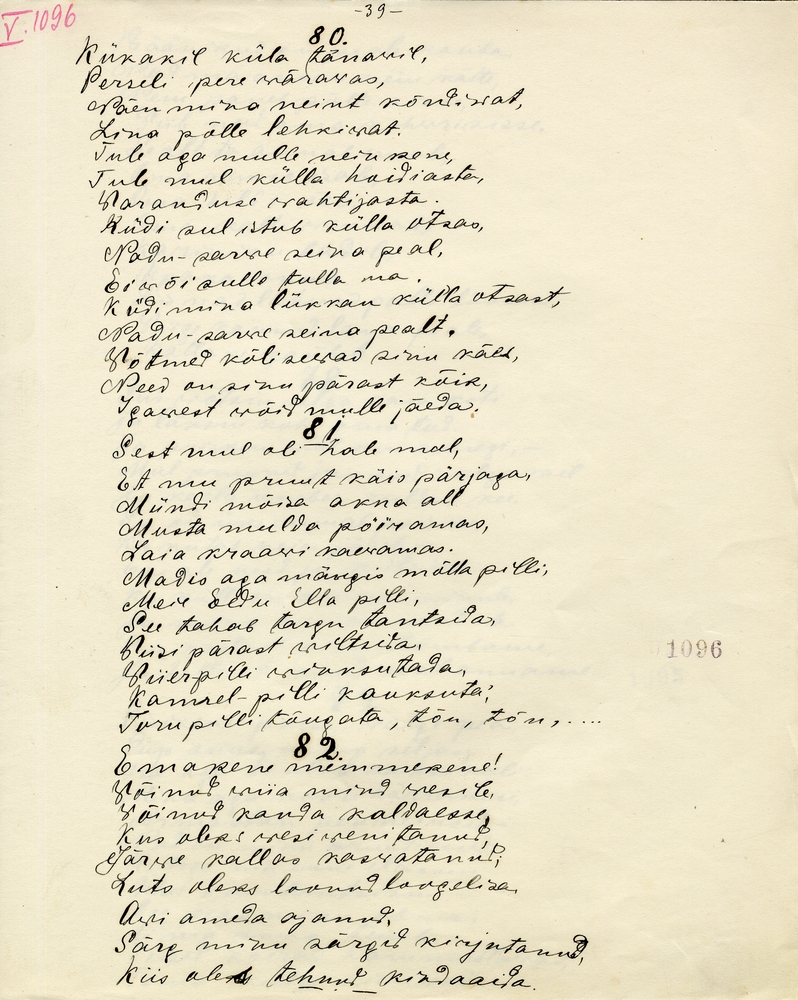 -39-
V. 1096
80.
Kükakil küla tänawil,
Perseli pere wärawas,
Näen mina neint kõndiwat,
Lina põlle lehkiwat.
Tule aga mulle neiukene,
Tule mul külla hoidiasta,
Waranduse wahtijasta.
Küdi sul istub külla otsas,
Nadu-sarwe seina peal,
Ei wõi sulle tulla ma.
Küdi mina lükkan külla otsast,
Nadu-sarwe seina pealt.
Wõtmed kõlisewad sinu käes,
Need on sinu pärast kõik,
Igawest wõid mulle jäeda.
81
Sest mul oli hale meel,
Et mu pruut käis pärjaga,
Mündi mõisa akna all
Musta mulda pööramas,
Laia kraawi kaewamas.
Madis aga mängis mõlla pilli,
Meie Eedu Ella pilli,
See tahab targu tantsida,
Wiisi pärast wiltsida,
Wiierpilli winksutada,
Kannel-pilli kauksuta;
Torupilli tõugata, tõu, tõu, ....
1096
82.
Emakene memmekene!
Wõinud wiia mind wesile,
Wõinud kanda kaldaesse,
Kus oleks wesi wenitanud,
Järwe kallas kaswatanud;
Luts oleks loonud loogelisa,
Awi ameda ajanud,
Särg minu särgid kirjutanud,
Kiis oleks tehnud kindaaida.